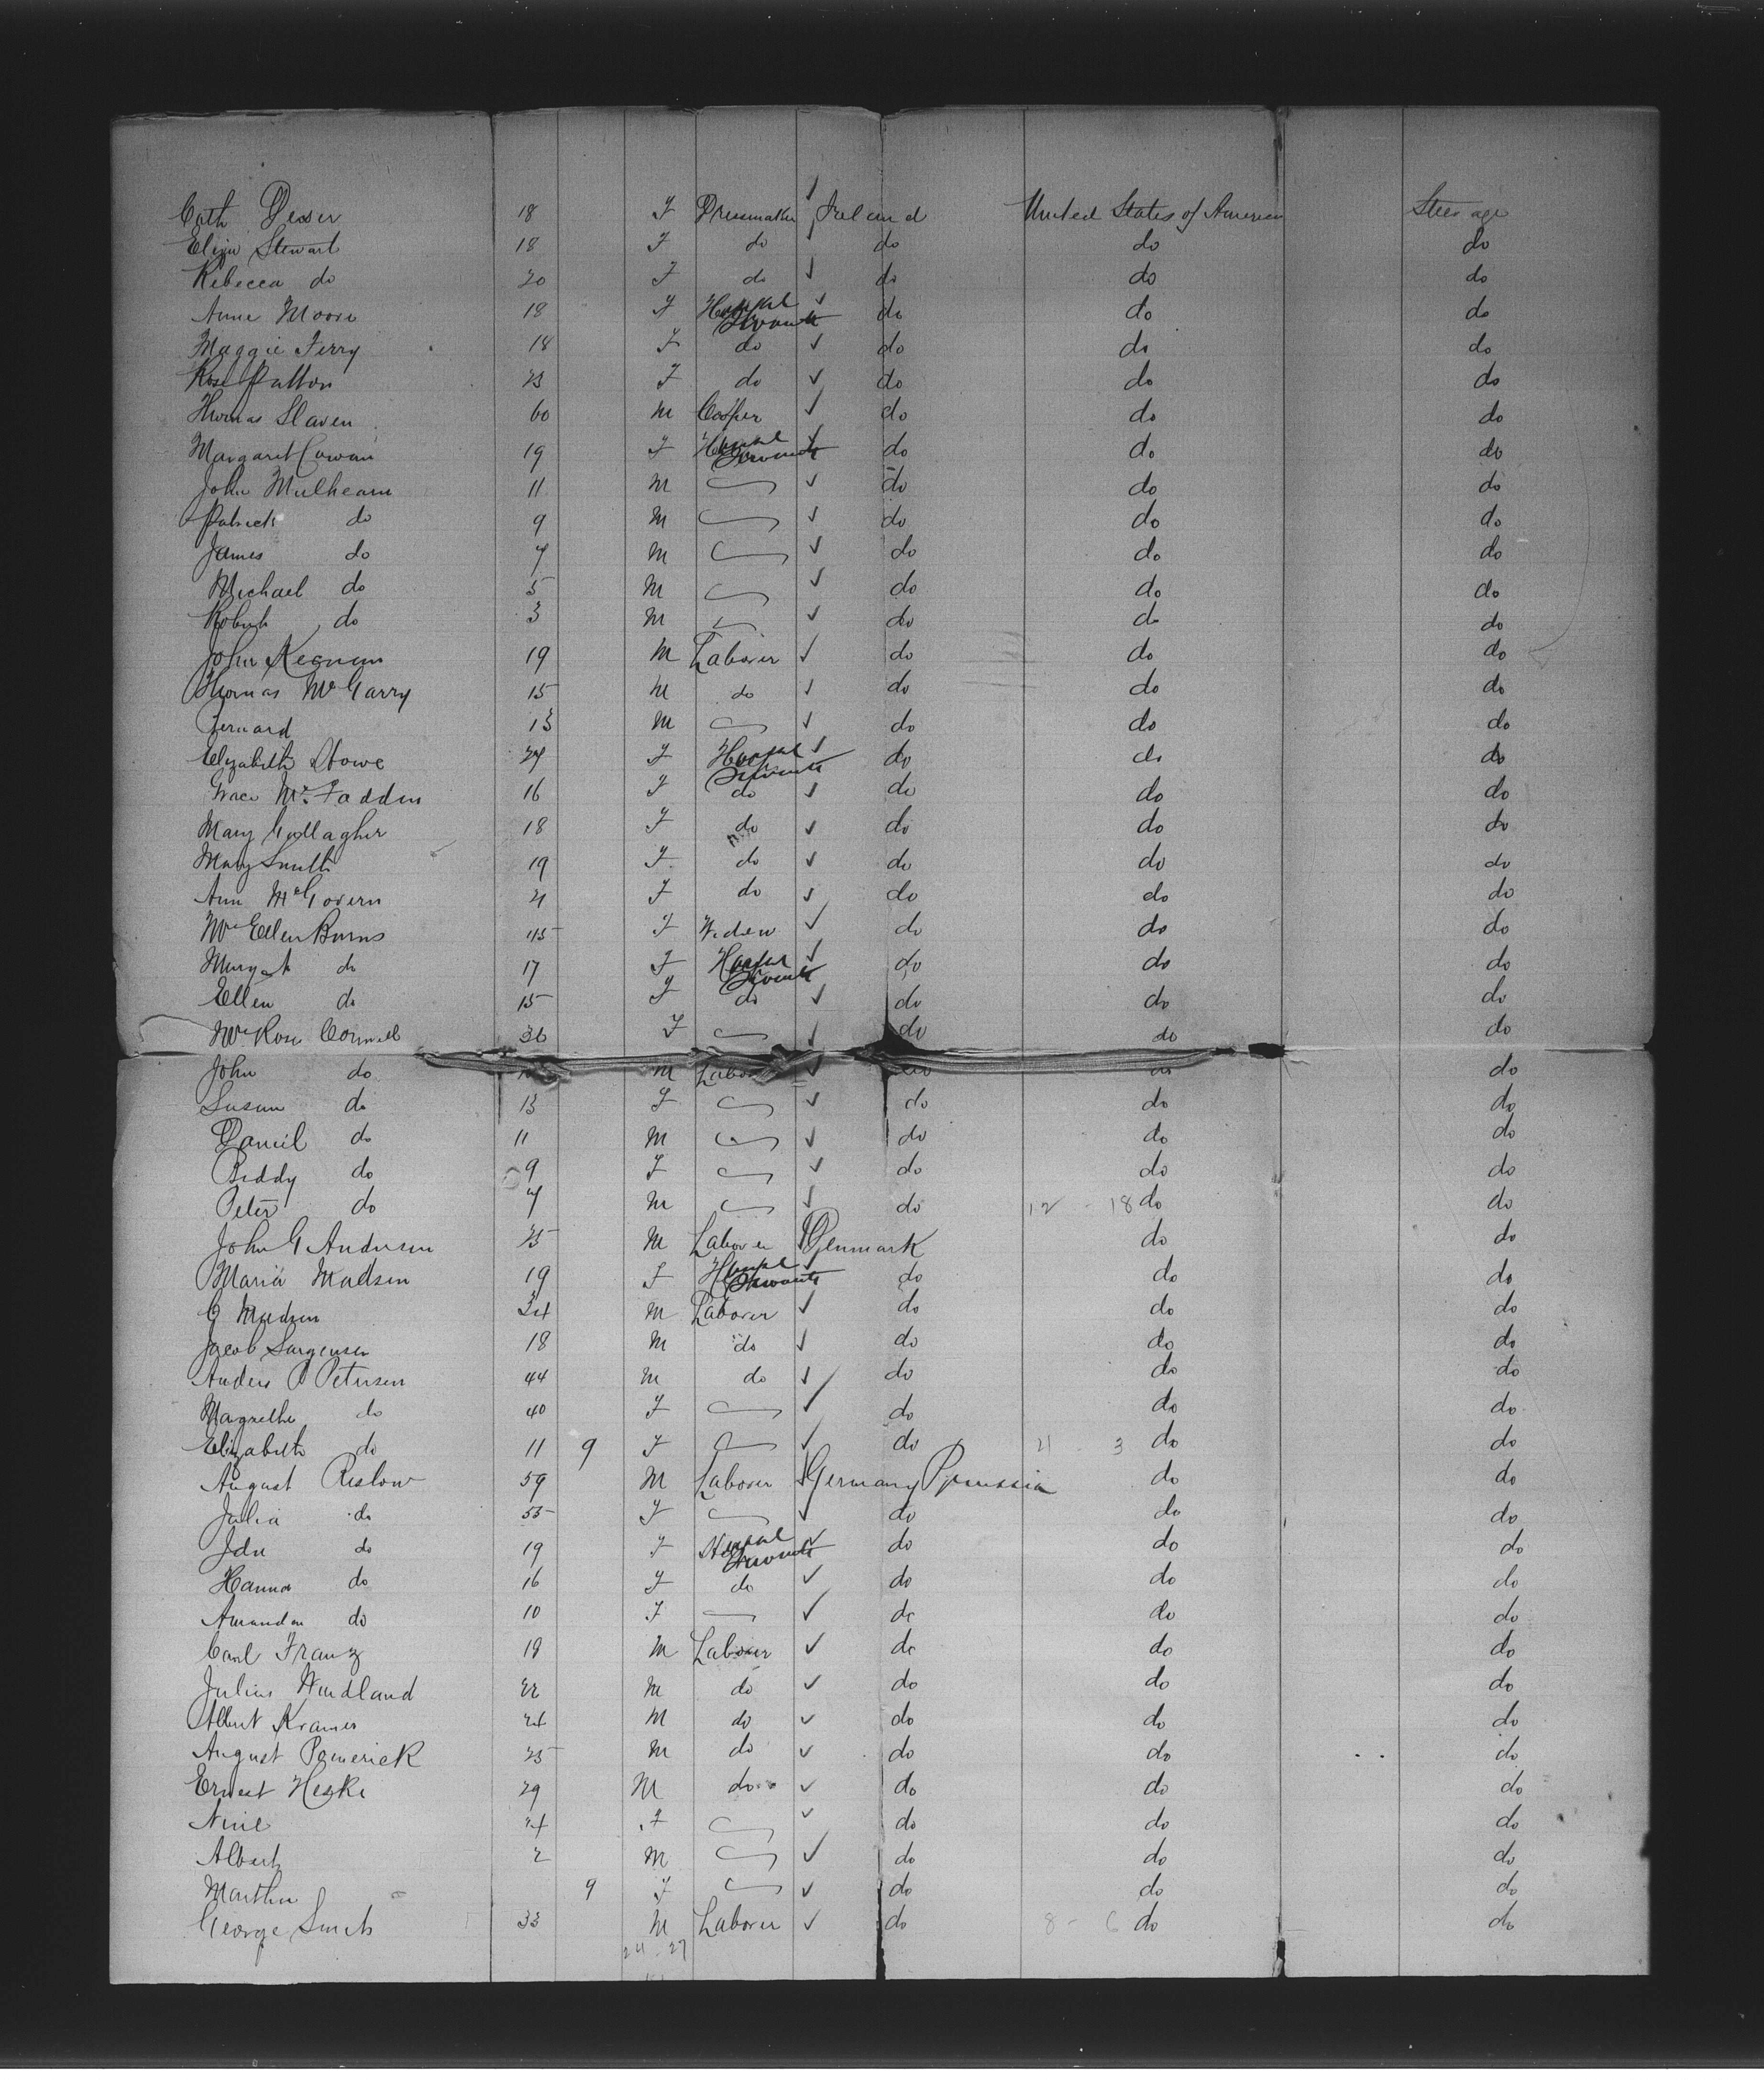 Cath Desser 18 F Dressmaker Ireland United States of America Steerage
Eliza Stewart 18 F do do do do
Rebecca do 20 F do do do do
Anne Moore 18 F Servant do do do
Maggie Ferry 18 F do do do do
Rose Patton 23 F do do do do
Thomas Slaven 60 M Cooper do do do
Margaret Cowan 19 F Servant do do do
John Mulhearn 11 M do do do
Patrick do 9 M do do do
James do 7 M do do do
Michael do 5 M do do do
Robert do 3 M do do do
John Keenan 19 M Laborer do do do
Thomas McGarry 15 M do do do do
Bernard 13 M do do do
Elizabeth Howe 24 F Servant do do do
Grace McFadden 16 F do do do do
Mary Gallagher 18 F do do do do
Mary Smith 19 F do do do do
Ann McGovern 21 F do do do do
Mrs Ellen Burns 45 F Widow do do do
Margat do 17 F Servant do do do
Ellen do 15 F do do do do
Mrs Rose Connell 36 F do do do
John do M Labor do do do
Susan do 13 F do do do
Daniel do 11 M do do do
Biddy do 9 F do do do
Peter do 7 M do 12 - 18 do do
John G Andersen 25 M Laborer Denmark do do
Maria Madsen 19 F Servant do do do
G Madsen 24 M Laborer do do do
Jacob Sorgensen 18 M do do do do
Anders P Petersen 44 M do do do do
Magrethe do 40 F do do do
Elizabeth do 11 9 F do 21 - 3 do do
August Reslow 59 M Laborer Germany Prussia do do
Julia do 55 F do do do
Ida do 19 F Servant do do do
Hanna do 16 F do do do do
Amandan do 10 F do do do
Carl Franz 19 M Laborer do do do
Julius Wendland 22 M do do do do
Albert Kramer 24 M do do do do
August Pomerick 25 M do do do do
Ernest Heske 29 M do do do do
Nine 24 F do do do
Albert 2 M do do do
Martha 9 F do do do
George Smith 33 M Laborer do 8 - 6 do do
24 - 27